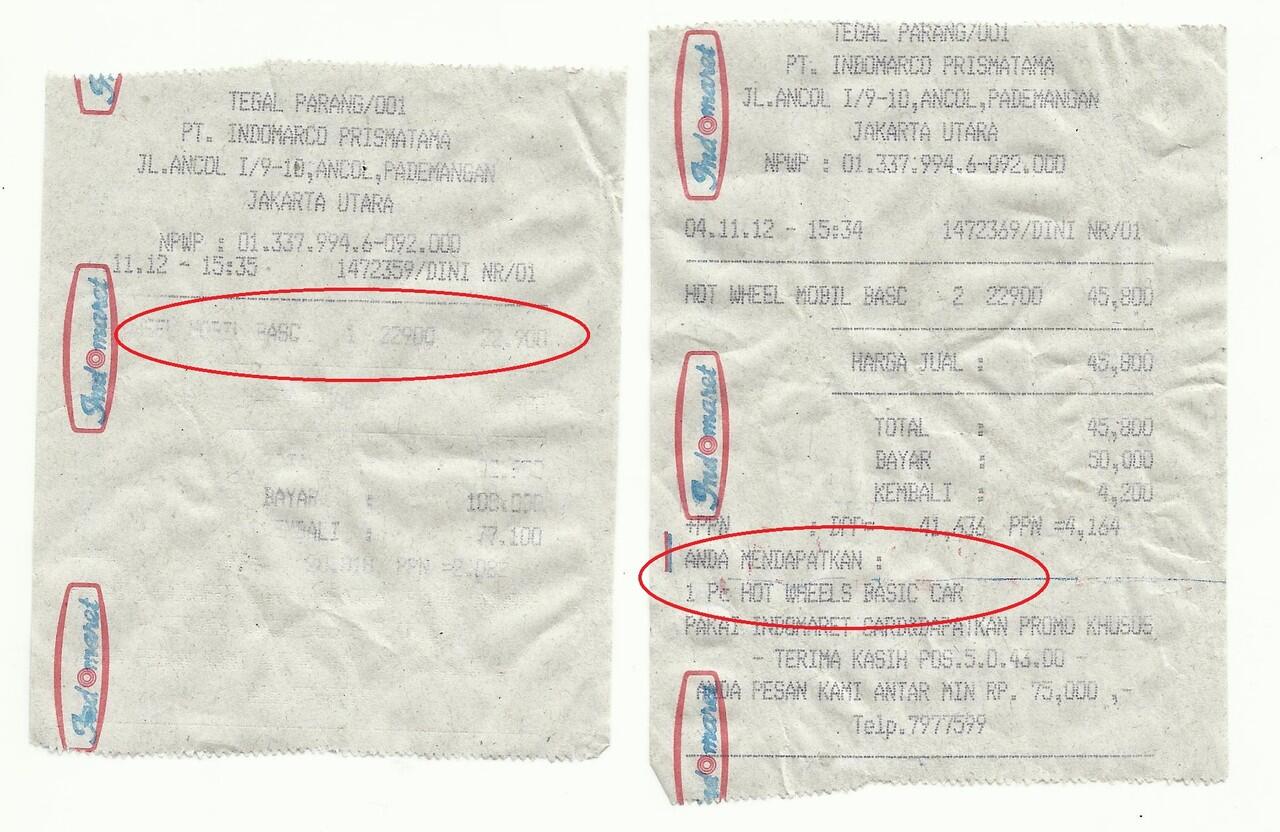 Indomaret
TEGAL PARANG/001
PT. INDOMARCO PRISMATAMA
JL.ANCOL I/9-10,ANCOL,PADEMANGAN
JAKARTA UTARA
NPWP : 01.337.994.6-092.000
11.12 - 15:35 1472359/DINI NR/01
Indomaret
MOBIL BASC 1 22900 22,900
BAYAR : 100.000
KEMBALI : 77.100
PPN
Indomaret
TEGAL PARANG/001
PT. INDOMARCO PRISMATAMA
JL.ANCOL I/9-10,ANCOL,PADEMANGAN
JAKARTA UTARA
NPWP : 01.337.994.6-092.000
Indomaret
04.11.12 - 15:34 1472369/DINI NR/01
HOT WHEEL MOBIL BASC 2 22900 45,800
HARGA JUAL : 45,800
Indomaret
TOTAL : 45,800
BAYAR : 50,000
KEMBALI : 4,200
+PPN : DPP= 41,636 PPN =4,164
ANDA MENDAPATKAN :
1 PC HOT WHEELS BASIC CAR
PAKAI INDOMARET CARD&DAPATKAN PROMO KHUSUS
- TERIMA KASIH POS.5.0.43.00 -
ANDA PESAN KAMI ANTAR MIN RP. 75,000 ,-
Telp.7977599
Indomaret